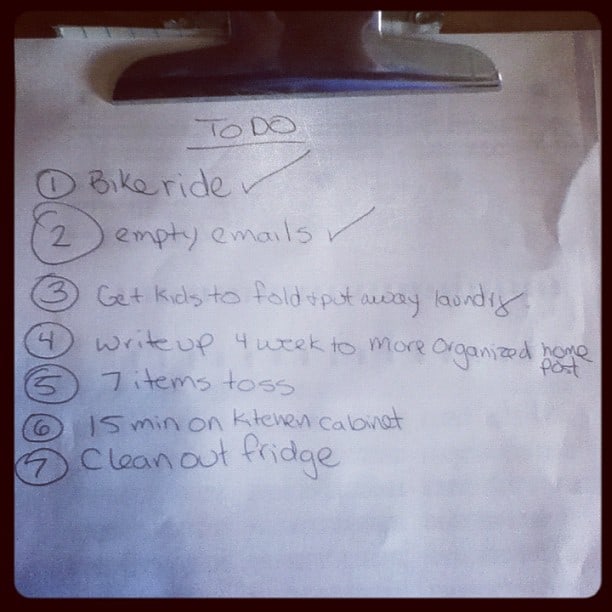 TO DO
① Bike ride ✓
② empty emails ✓
③ Get kids to fold + put away laundry
④ write up 4 week to more organized home post
⑤ 7 items toss
⑥ 15 min on kitchen cabinet
⑦ Clean out fridge